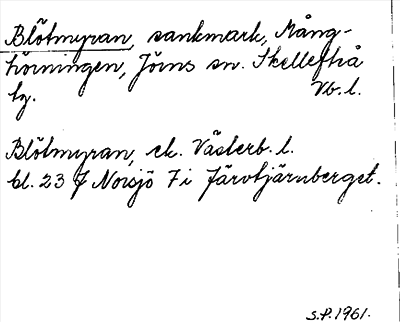 Blötmyran, sankmark, Mång-
hörningen, Jörns sn. Skellefteå
tg. Vb. l.
Blötmyran, ek. Västerb. l.
bl. 23 J Norsjö 7 i Järvtjärnberget.
S.P. 1961.